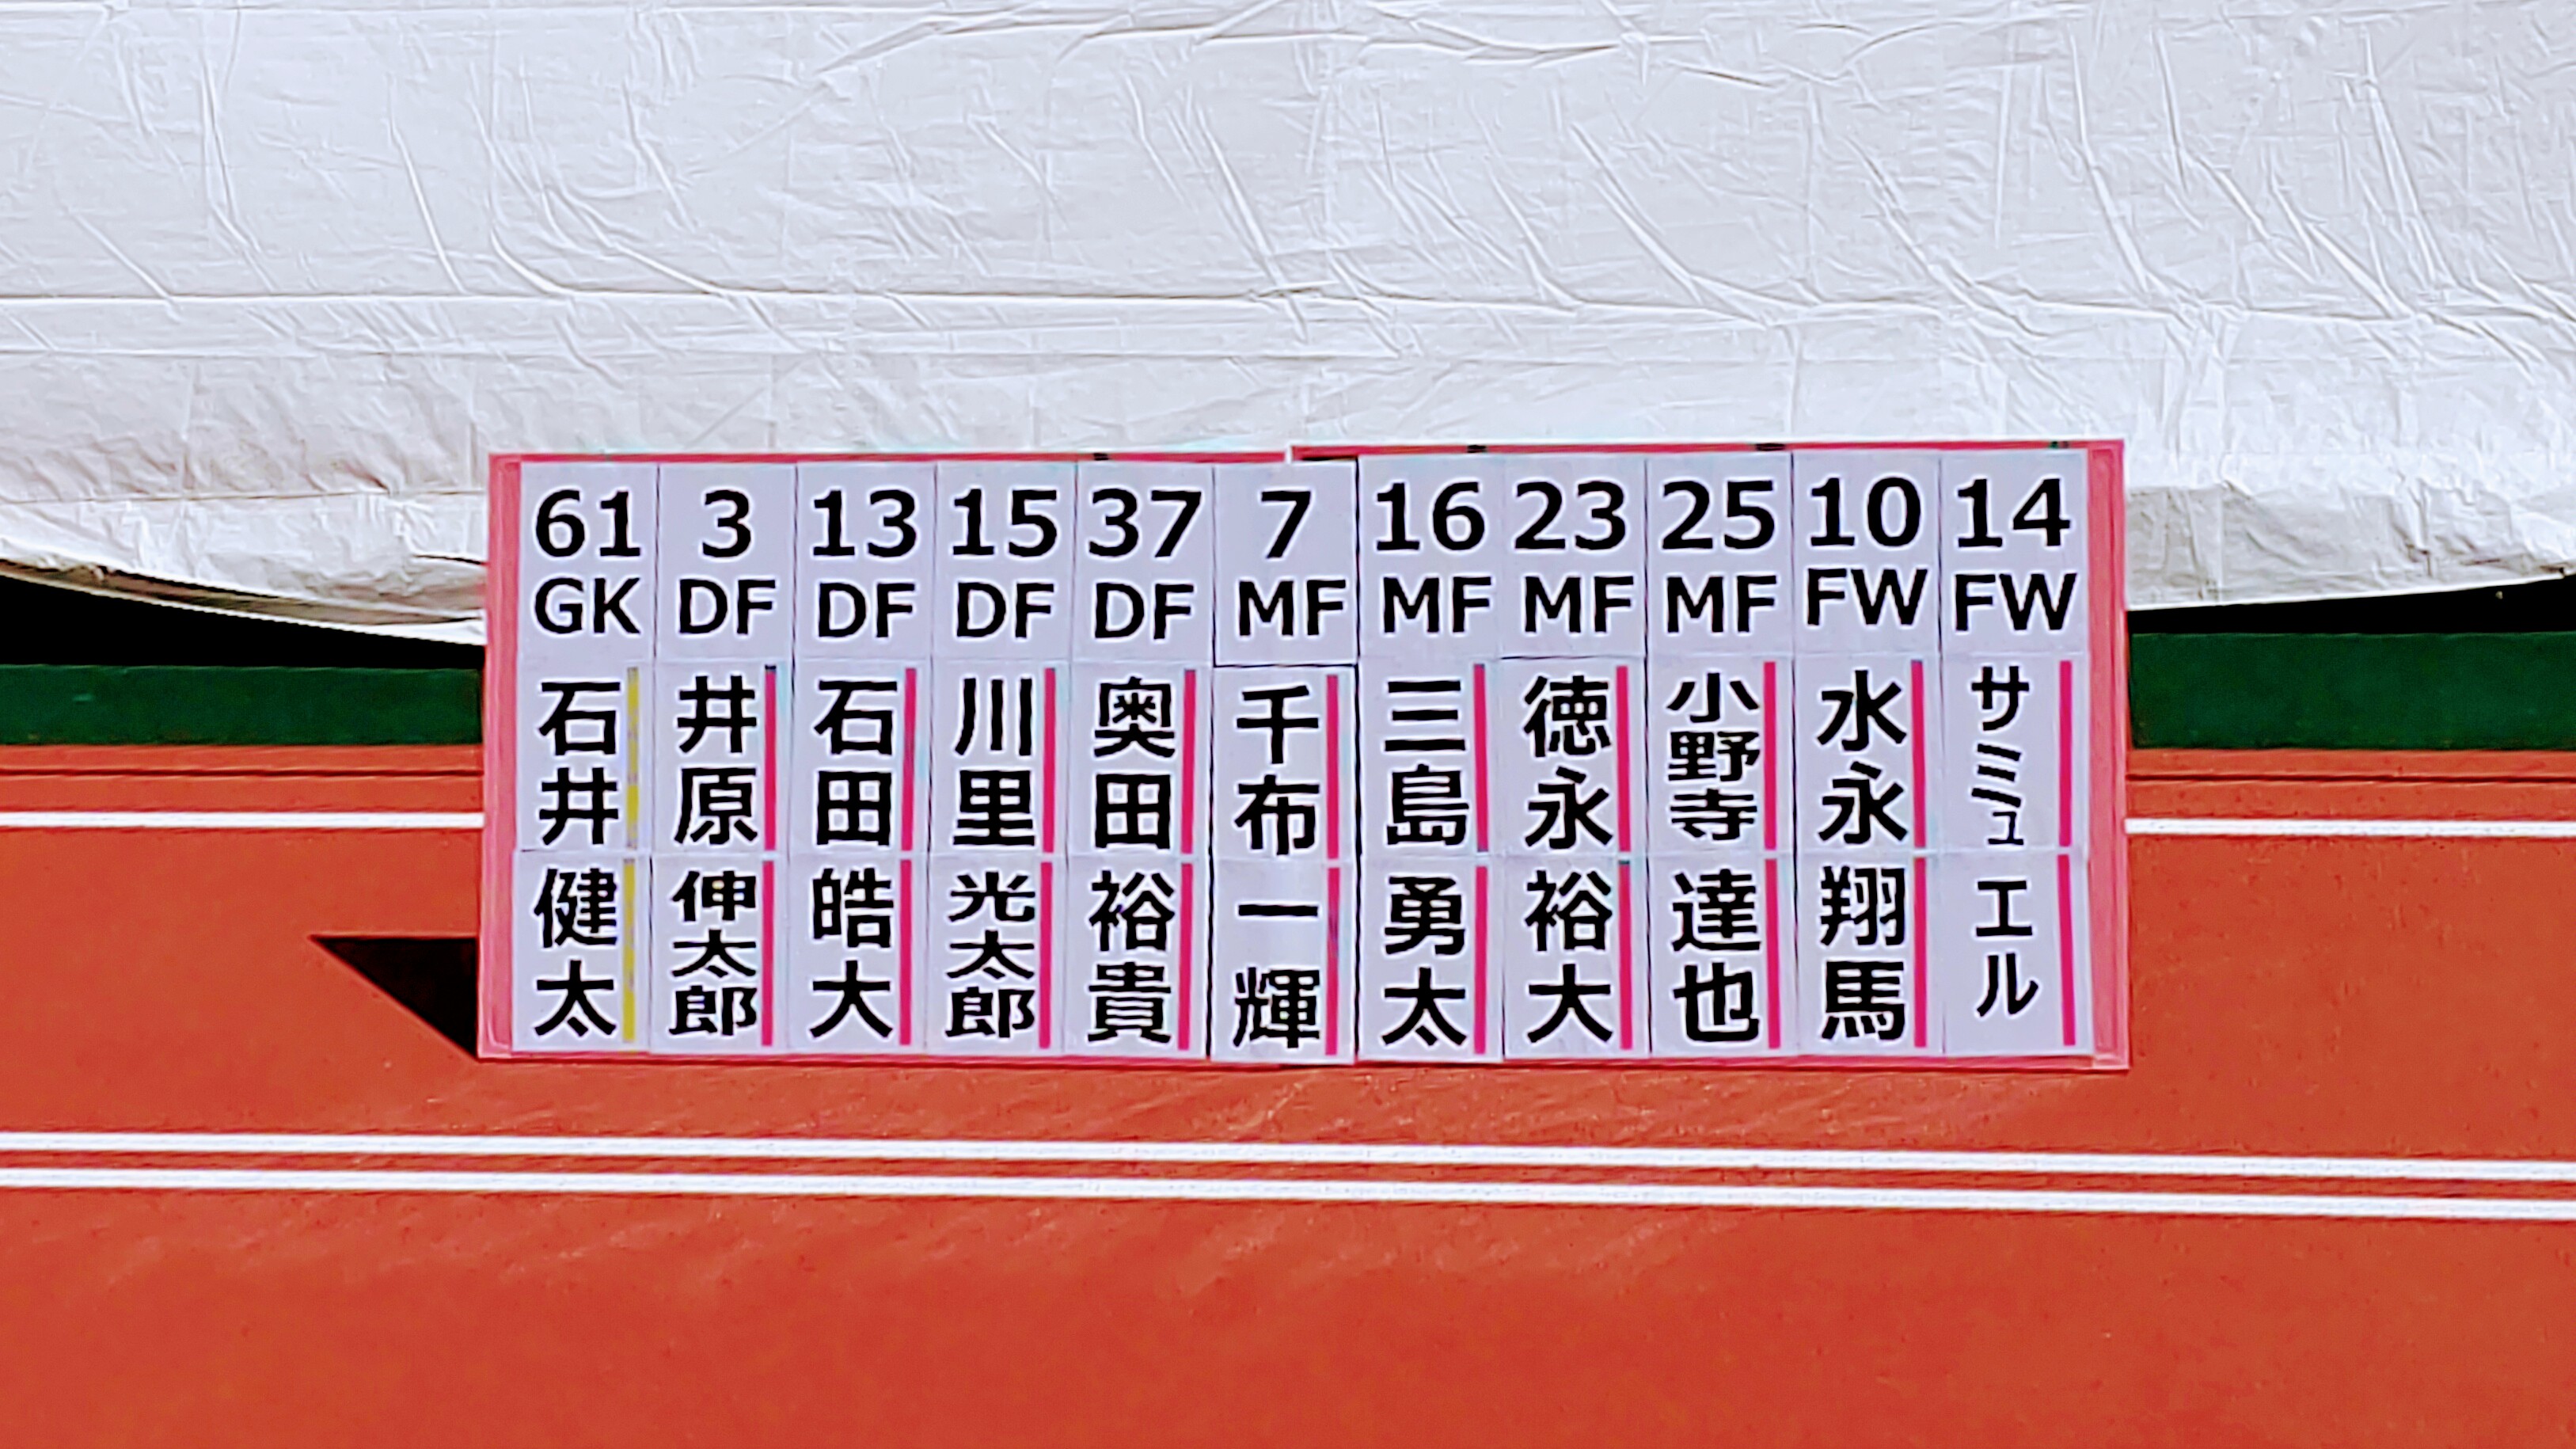 61 GK 石井 健太
3 DF 井原 伸太郎
13 DF 石田 皓大
15 DF 川里 光太郎
37 DF 奥田 裕貴
7 MF 千布 一輝
16 MF 三島 勇太
23 MF 徳永 裕大
25 MF 小野寺 達也
10 FW 水永 翔馬
14 FW サミュ エル